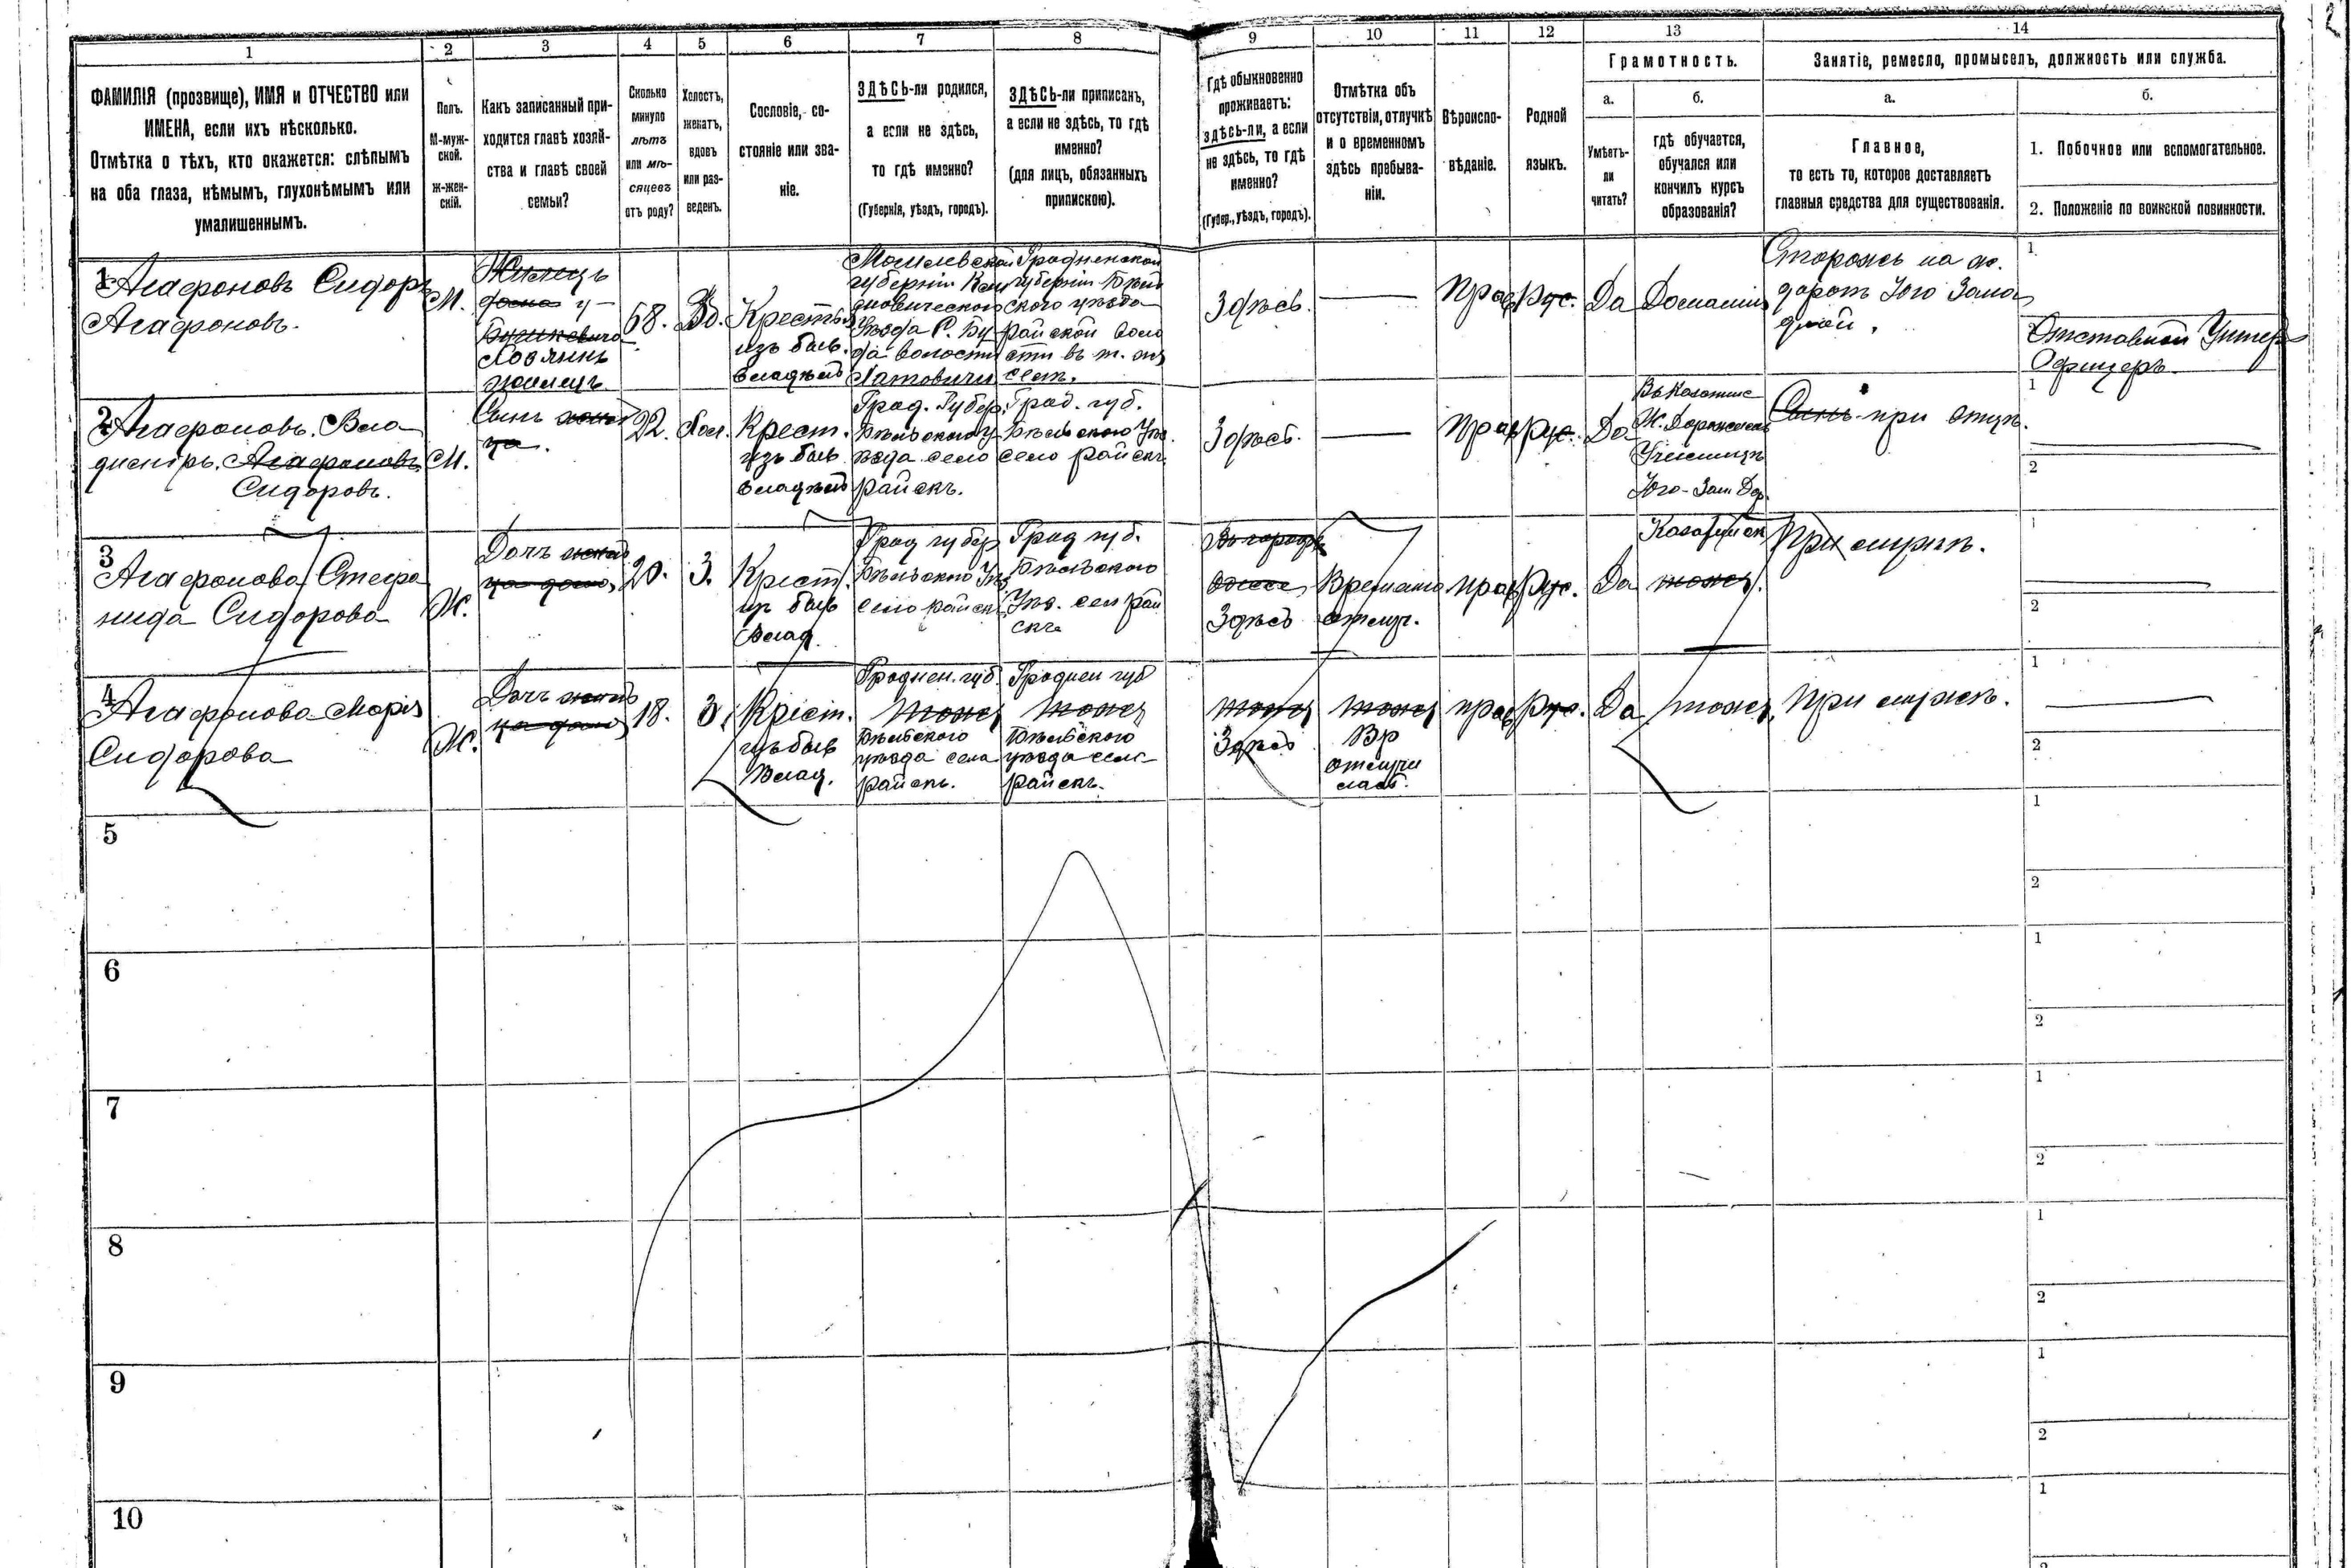 1 2 3 4 5 6 7 8 9 10 11 12 13 14
ФАМИЛІЯ (прозвище), ИМЯ и ОТЧЕСТВО или
ИМЕНА, если ихъ нѣсколько.
Отмѣтка о тѣхъ, кто окажется: слѣпымъ
на оба глаза, нѣмымъ, глухонѣмымъ или
умалишеннымъ.
Полъ.
М-муж-
ской.
ж-жен-
скій.
Какъ записанный при-
ходится главѣ хозяй-
ства и главѣ своей
семьи?
Сколько
минуло
лѣтъ
или мѣ-
сяцевъ
отъ роду?
Холостъ,
женатъ,
вдовъ
или раз-
веденъ.
Сословіе, со-
стояніе или зва-
ніе.
ЗДѢСЬ-ли родился,
а если не здѣсь,
то гдѣ именно?
(Губернія, уѣздъ, городъ).
ЗДѢСЬ-ли приписанъ,
а если не здѣсь, то гдѣ
именно?
(для лицъ, обязанныхъ
припискою).
Гдѣ обыкновенно
проживаетъ:
здѣсь-ли, а если
не здѣсь, то гдѣ
именно?
(Губер., уѣздъ, городъ).
Отмѣтка объ
отсутствіи, отлучкѣ
и о временномъ
здѣсь пребыва-
ніи.
Вѣроиспо-
вѣданіе.
Родной
языкъ.
Грамотность.
а.
Умѣетъ-
ли
читать?
б.
гдѣ обучается,
обучался или
кончилъ курсъ
образованія?
Занятіе, ремесло, промыселъ, должность или служба.
а.
Главное,
то есть то, которое доставляетъ
главныя средства для существованія.
б.
1. Побочное или вспомогательное.
2. Положеніе по воинской повинности.
1
Агафоновъ Сидоръ
Агафоновъ.
М.
Жилецъ
дома у
Хозяинъ
жилецъ
68.
Вд.
Крестьян
изъ быв.
владѣл
Могилевской
губерніи Кли
мовического
Уѣзда С.
да волости
Гродненской
губерніи Бѣль
ского уѣзда
райской воло
сти въ т. же
селѣ.
Здѣсь.
Прав
Рус.
Да
Домашн
Сторожъ на же.
дорогѣ Юго Запа
дной.
1
2
Отставной Унтер
Офицеръ.
2
Агафоновъ. Вла
диміръ. Агафоновъ
Сидоровъ.
М.
Сынъ жиль
ца.
22.
Хол.
Крест.
изъ быв
владѣл
Грод. Губер.
Бѣльского У
ѣзда село
райскъ.
Грод. губ.
Бѣльского Уѣз.
село райскъ.
Здѣсь.
Прав
Рус.
Да
Въ Казатине
Ж. Дорожномъ
Училищѣ
Юго-Зап Дор.
Сынъ при отцѣ.
1
2
3
Агафонова Стефа
нида Сидорова
Ж.
Дочь жиль
ца дома
20.
З.
Крест.
изъ быв
Влад.
Грод губер
Бѣльского Уѣз
село райскъ
Грод губ.
Бѣльского
Уѣз. сел рай
скъ
Въ городѣ
Одессе
Здѣсь
Временно
отлуч.
прав
Рус.
Да
тоже.
При отцѣ.
1
2
4
Агафонова Марія
Сидорова
Ж.
Дочь жиль
ца дома
18.
З.
Крест.
изъ быв
Влад.
Гроднен. губ.
тоже
Бѣльского
уѣзда села
райскъ.
Гроднен губ
тоже
Бѣльского
уѣзда село
райскъ.
тоже
Здѣсь
тоже
Вр
отлучи
лась.
прав
Рус.
Да
тоже.
При отцѣ.
1
2
5
1
2
6
1
2
7
1
2
8
1
2
9
1
2
10
1